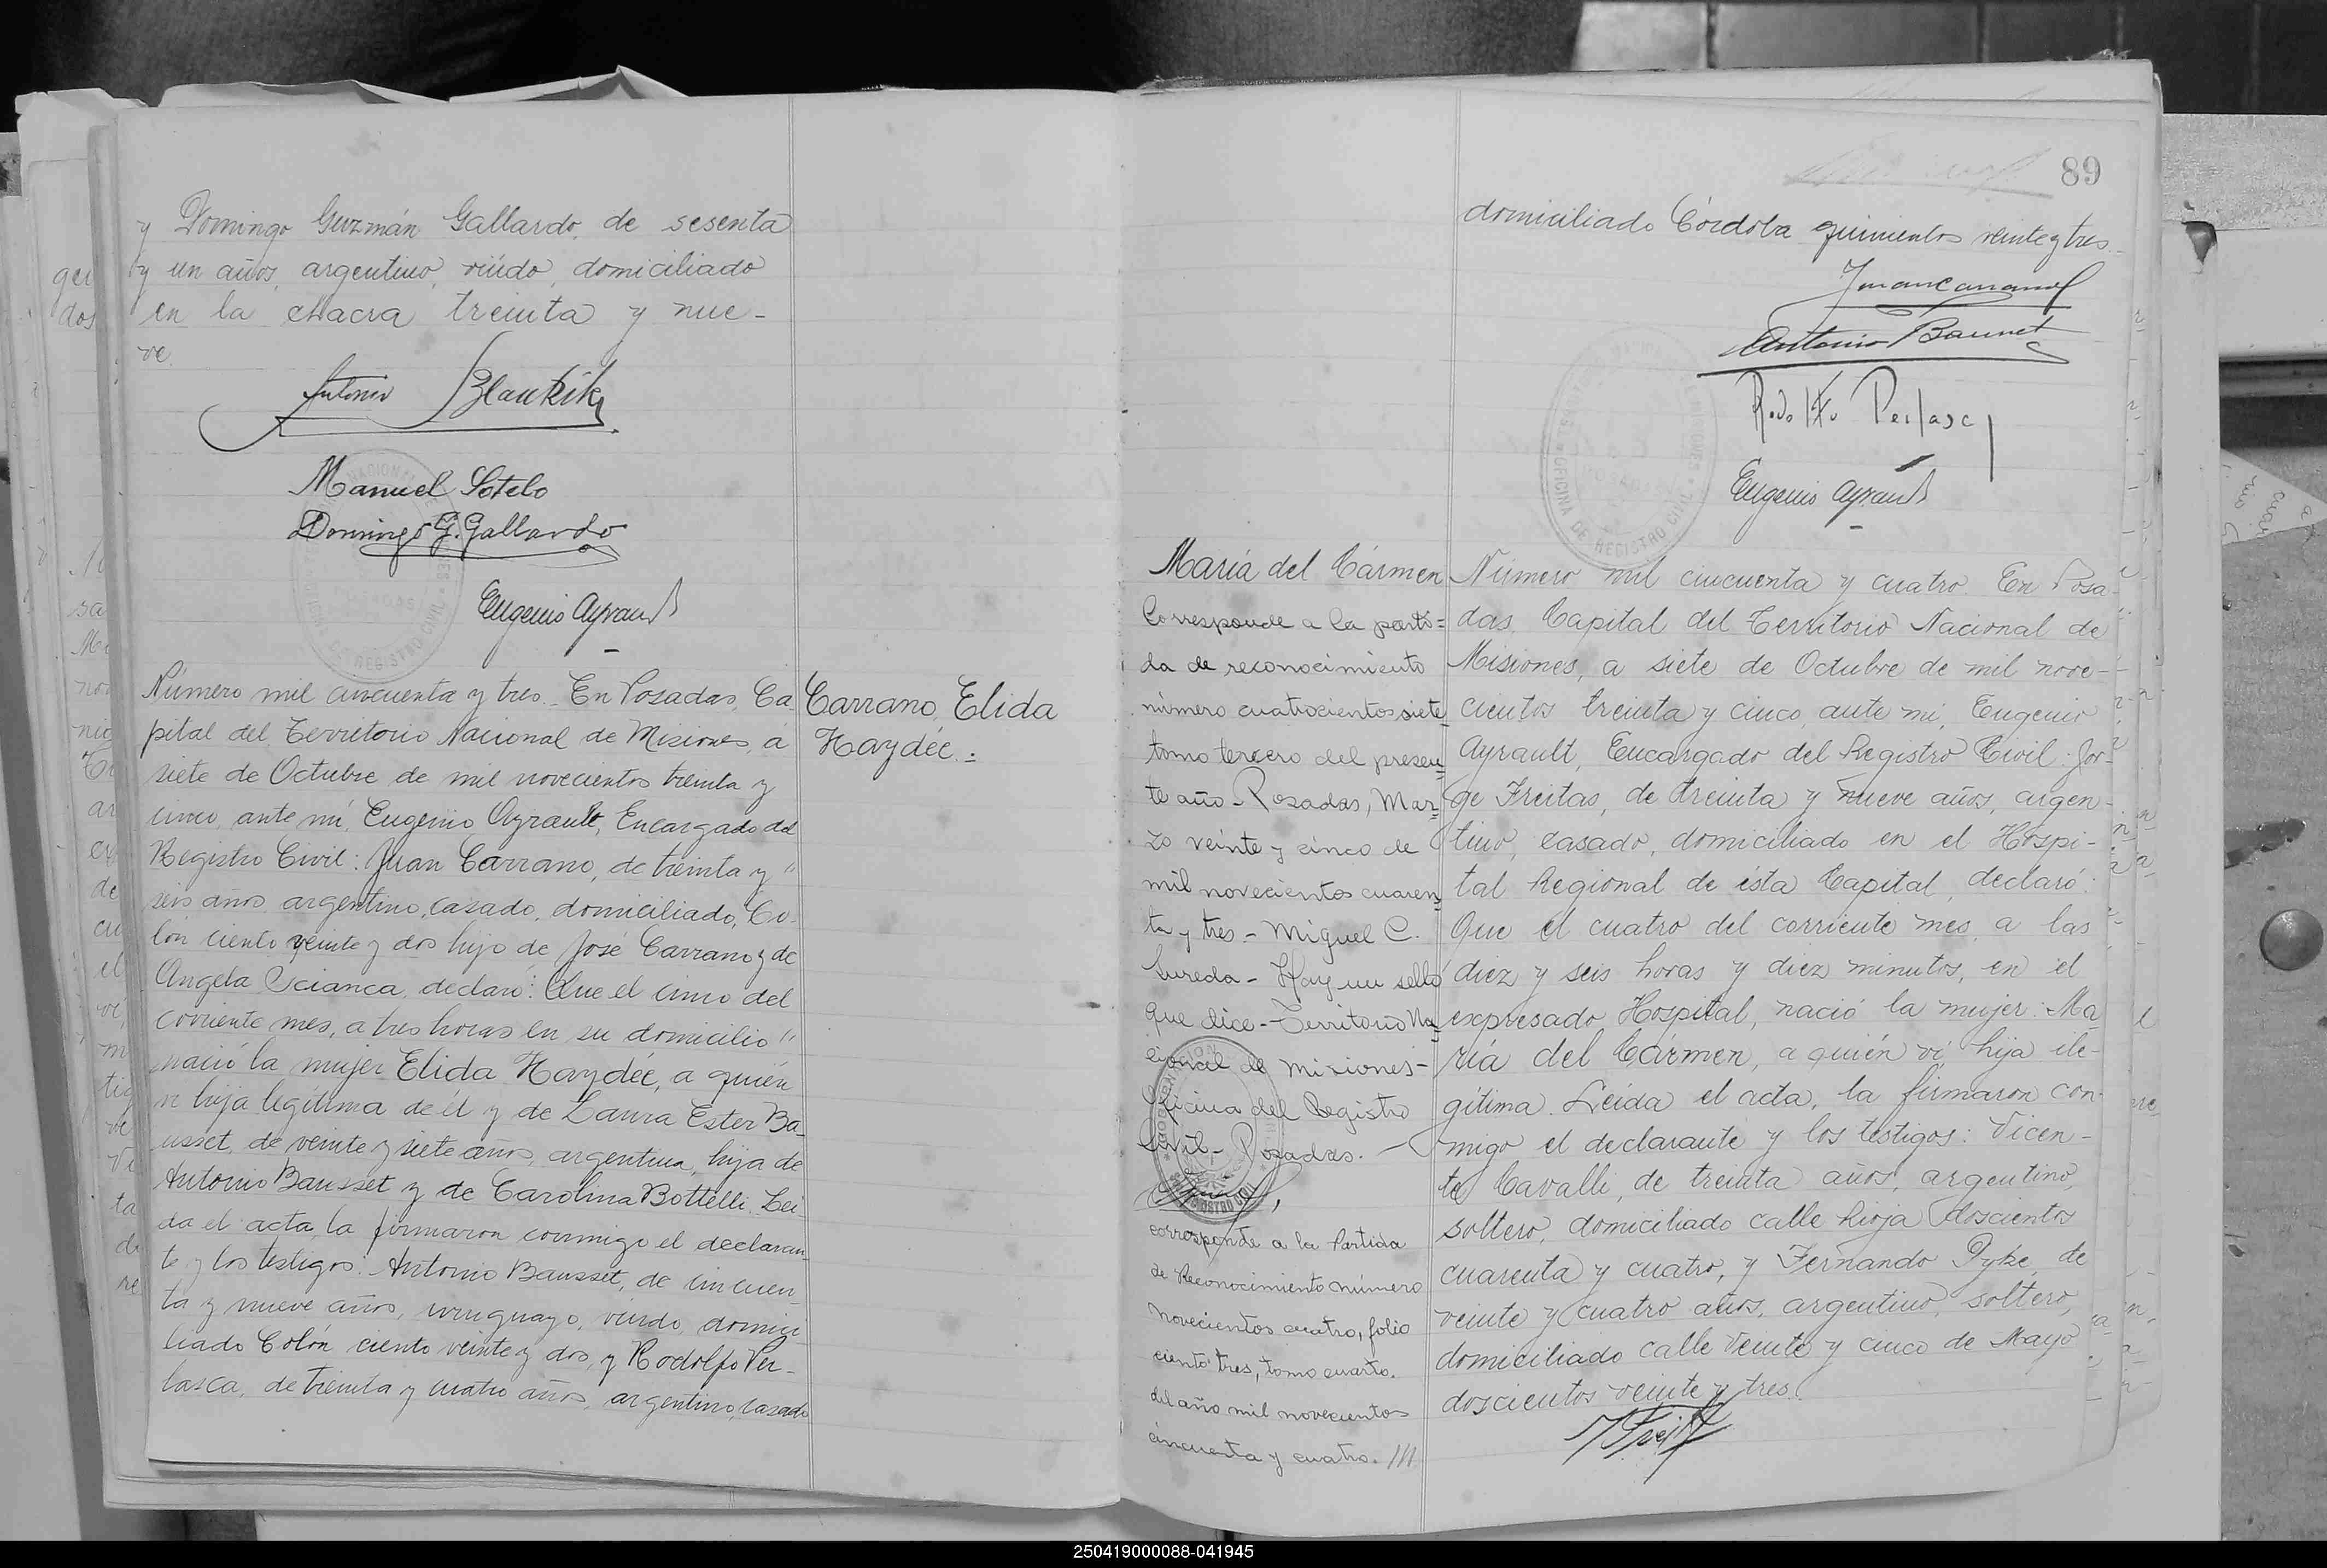 y Domingo Guzmán Gallardo, de sesenta
y un años, argentino, viúdo, domiciliado
en la chacra treinta y nue-
ve.
Antonio
Manuel Sotelo
Domingo G. Gallardo
Eugenio Ayrault
Número mil cincuenta y tres. En Posadas, Ca
pital del Territorio Nacional de Misiones, a
siete de Octubre de mil novecientos treinta y
cinco, ante mí, Eugenio Ayrault, Encargado del
Registro Civil: Juan Carrano, de treinta y "
seis años, argentino, casado, domiciliado, Co-
lón ciento veinte y dos hijo de José Carrano y de
Angela Scianca, declaró: Que el cinco del
corriente mes, a tres horas en su domicilio "
nació la mujer Elida Haydée, a quién
ví hija legítima de él y de Laura Ester Ba-
usset, de veinte y siete años, argentina, hija de
Antonio Bausset y de Carolina Bottelli. Leí-
da el acta, la firmaron conmigo el declaran-
te y los testigos: Antonio Bausset, de cincuen-
ta y nueve años, uruguayo, viúdo, domici-
liado Colón ciento veinte y dos, y Rodolfo Per-
lasca, de treinta y cuatro años, argentino, casado
Carrano, Elida
Haydée.=
89
domiciliado Córdoba quinientos veinte y tres.
Juan Carrano
Antonio Bausset
Rodolfo Perlasca
Eugenio Ayrault
OFICINA DE REGISTRO CIVIL
María del Cármen
Corresponde a la parti=
da de reconocimiento
número cuatrocientos siete
tomo tercero del presen=
te año - Posadas, Mar=
zo veinte y cinco de
mil novecientos cuaren=
ta y tres - Miguel C.
Hay un sello
que dice - Territorio Na=
cional de Misiones -
Oficina del Registro
Civil - Posadas. -
corresponde a la Partida
de Reconocimiento número
novecientos cuatro, folio
ciento tres, tomo cuarto.
del año mil novecientos
cincuenta y cuatro. ///
Número mil cincuenta y cuatro. En Posa-
das, Capital del Territorio Nacional de
Misiones, a siete de Octubre de mil nove-
cientos treinta y cinco, ante mí, Eugenio
Ayrault, Encargado del Registro Civil: Jor-
ge Freitas, de treinta y nueve años, argen-
tino, casado, domiciliado en el Hospi-
tal Regional de ésta Capital, declaró:
Que el cuatro del corriente mes, a las
diez y seis horas y diez minutos, en el
expresado Hospital, nació la mujer: Ma
ría del Cármen, a quién ví hija ile-
gítima. Leída el acta, la firmaron con-
migo el declarante y los testigos: Vicen-
te Cavalli, de treinta años, argentino,
soltero, domiciliado calle Rioja doscientos
cuarenta y cuatro, y Fernando Dyke, de
veinte y cuatro años, argentino, soltero,
domiciliado calle Veinte y cinco de Mayo
doscientos veinte y tres.
250419000088-041945